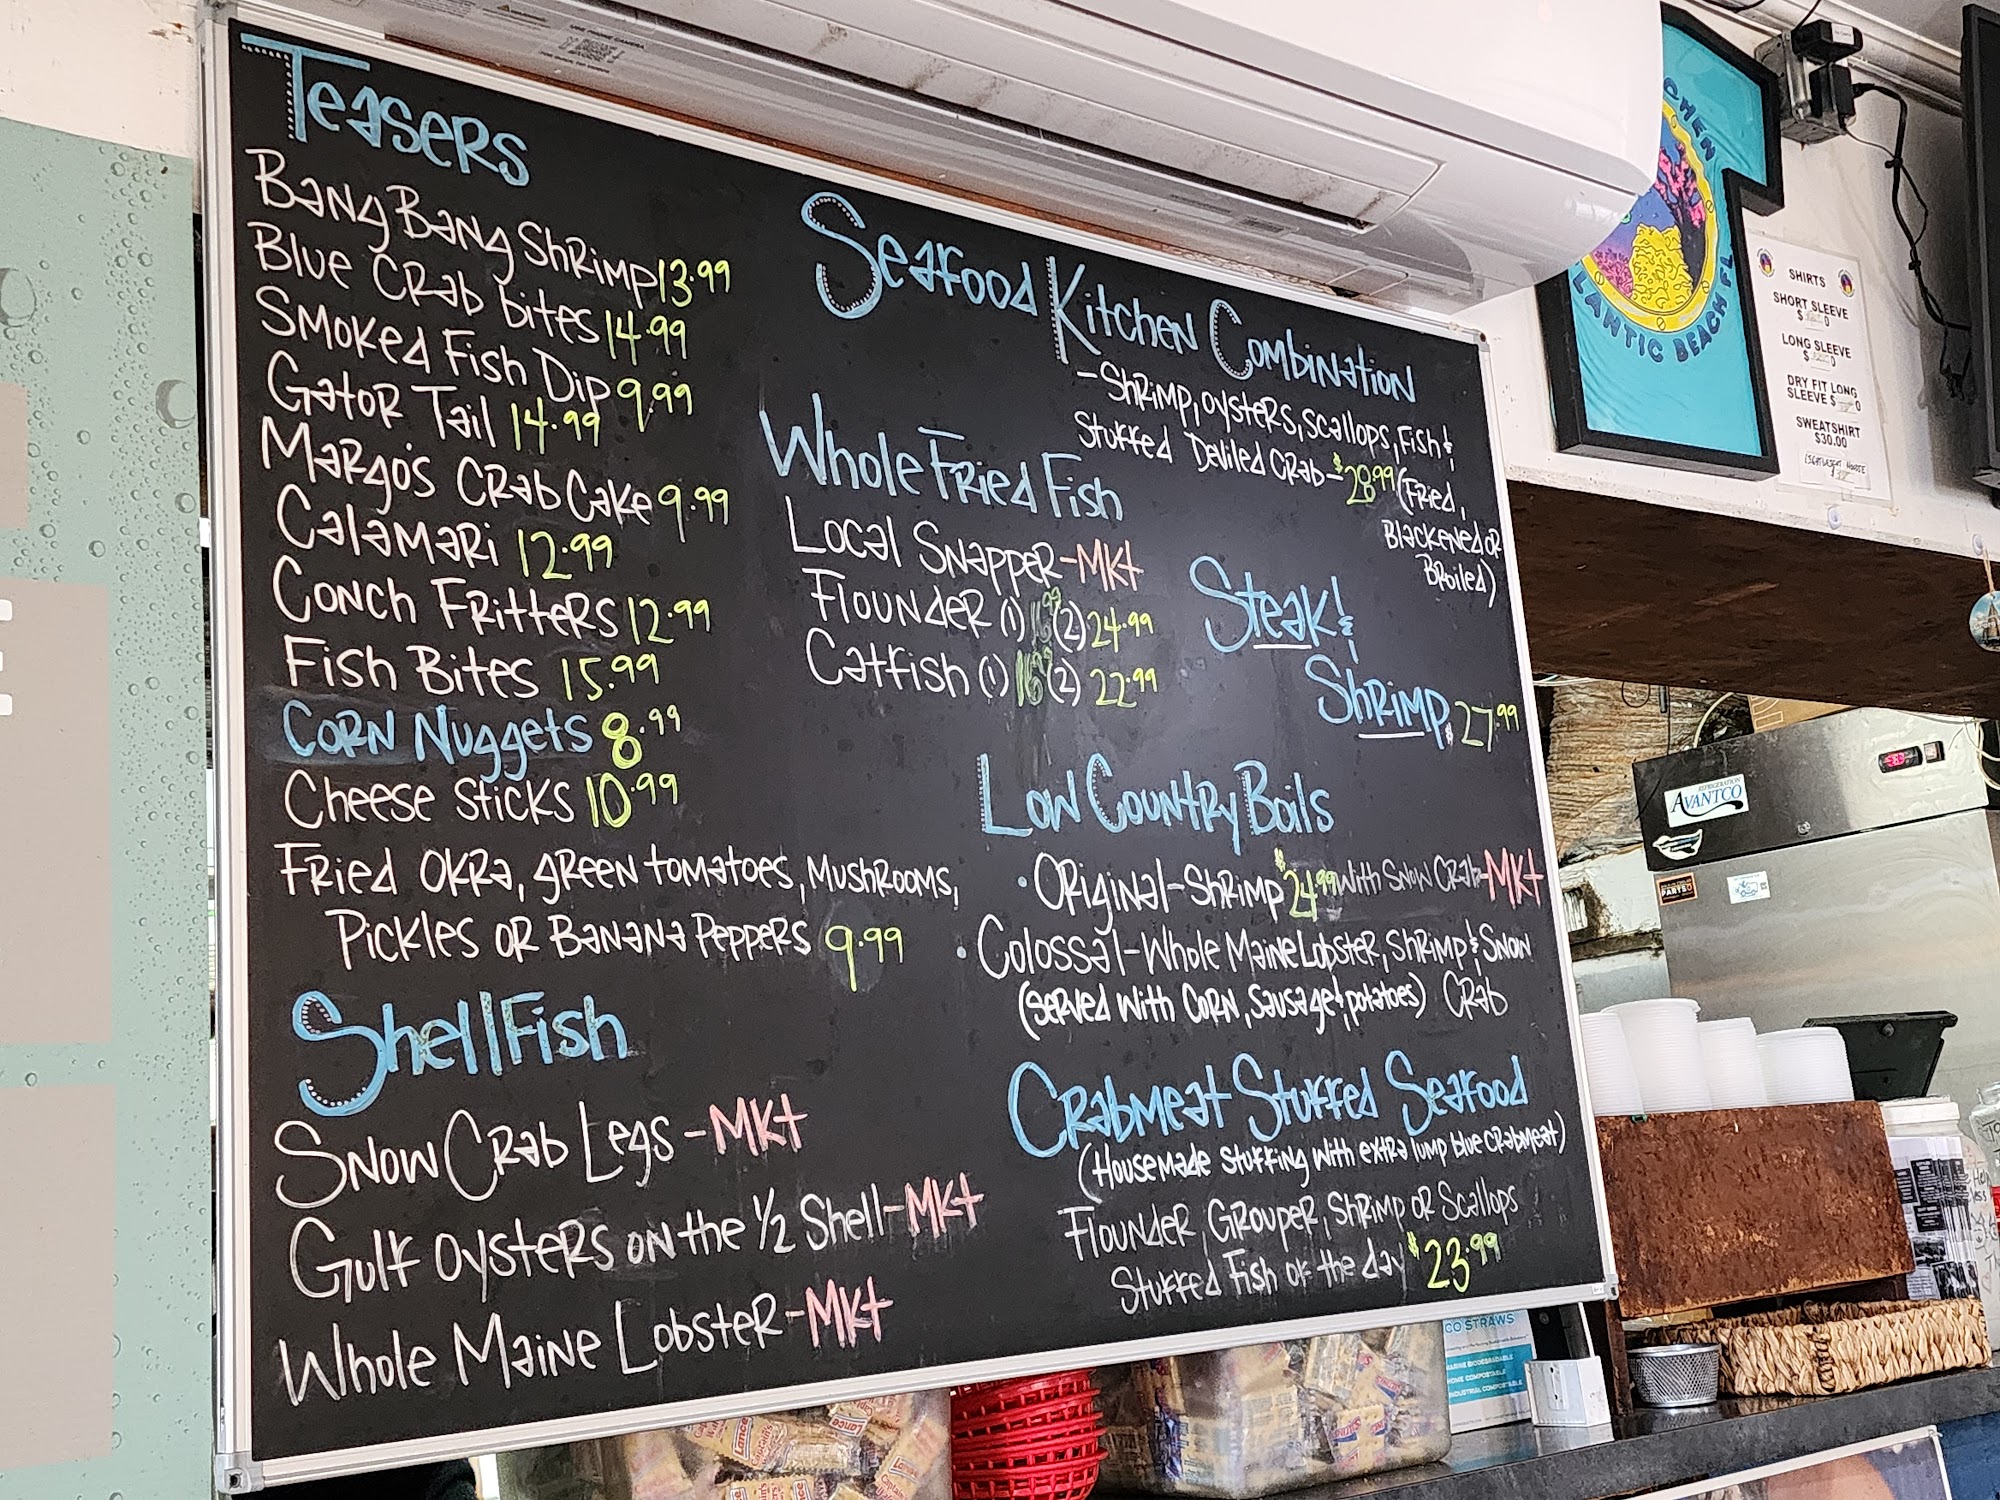 Teasers
Bang Bang Shrimp 13.99
Blue Crab bites 14.99
Smoked Fish Dip 9.99
Gator Tail 14.99
Margo's Crab Cake 9.99
Calamari 12.99
Conch Fritters 12.99
Fish Bites 15.99
Corn Nuggets 8.99
Cheese Sticks 10.99
Fried Okra, green tomatoes, Mushrooms,
Pickles or Banana Peppers 9.99
Shellfish
Snow Crab Legs - Mkt
Gulf oysters on the 1/2 Shell - Mkt
Whole Maine Lobster - Mkt
Seafood Kitchen Combination
- Shrimp, oysters, scallops, Fish &
Stuffed Deviled Crab - $28.99 (Fried,
Blackened or
Broiled)
Whole Fried Fish
Local Snapper - Mkt
Flounder (1) 16.99 (2) 24.99
Catfish (1) 16.99 (2) 22.99
Steak &
Shrimp 27.99
Low Country Boils
• Original - Shrimp $24.99 with Snow Crab - Mkt
• Colossal - Whole Maine Lobster, Shrimp & Snow
(served with Corn, Sausage & potatoes) Crab
Crabmeat Stuffed Seafood
(Housemade stuffing with extra lump blue crabmeat)
Flounder, Grouper, Shrimp or Scallops
Stuffed Fish of the day $23.99
LANTIC BEACH FL
SHIRTS
SHORT SLEEVE
LONG SLEEVE
DRY FIT LONG
SLEEVE
SWEATSHIRT
$30.00
REFRIGERATION
AVANTCO
PARTS
GO STRAWS
MARINE BIODEGRADABLE
HOME COMPOSTABLE
INDUSTRIAL COMPOSTABLE
Lance
Captain's